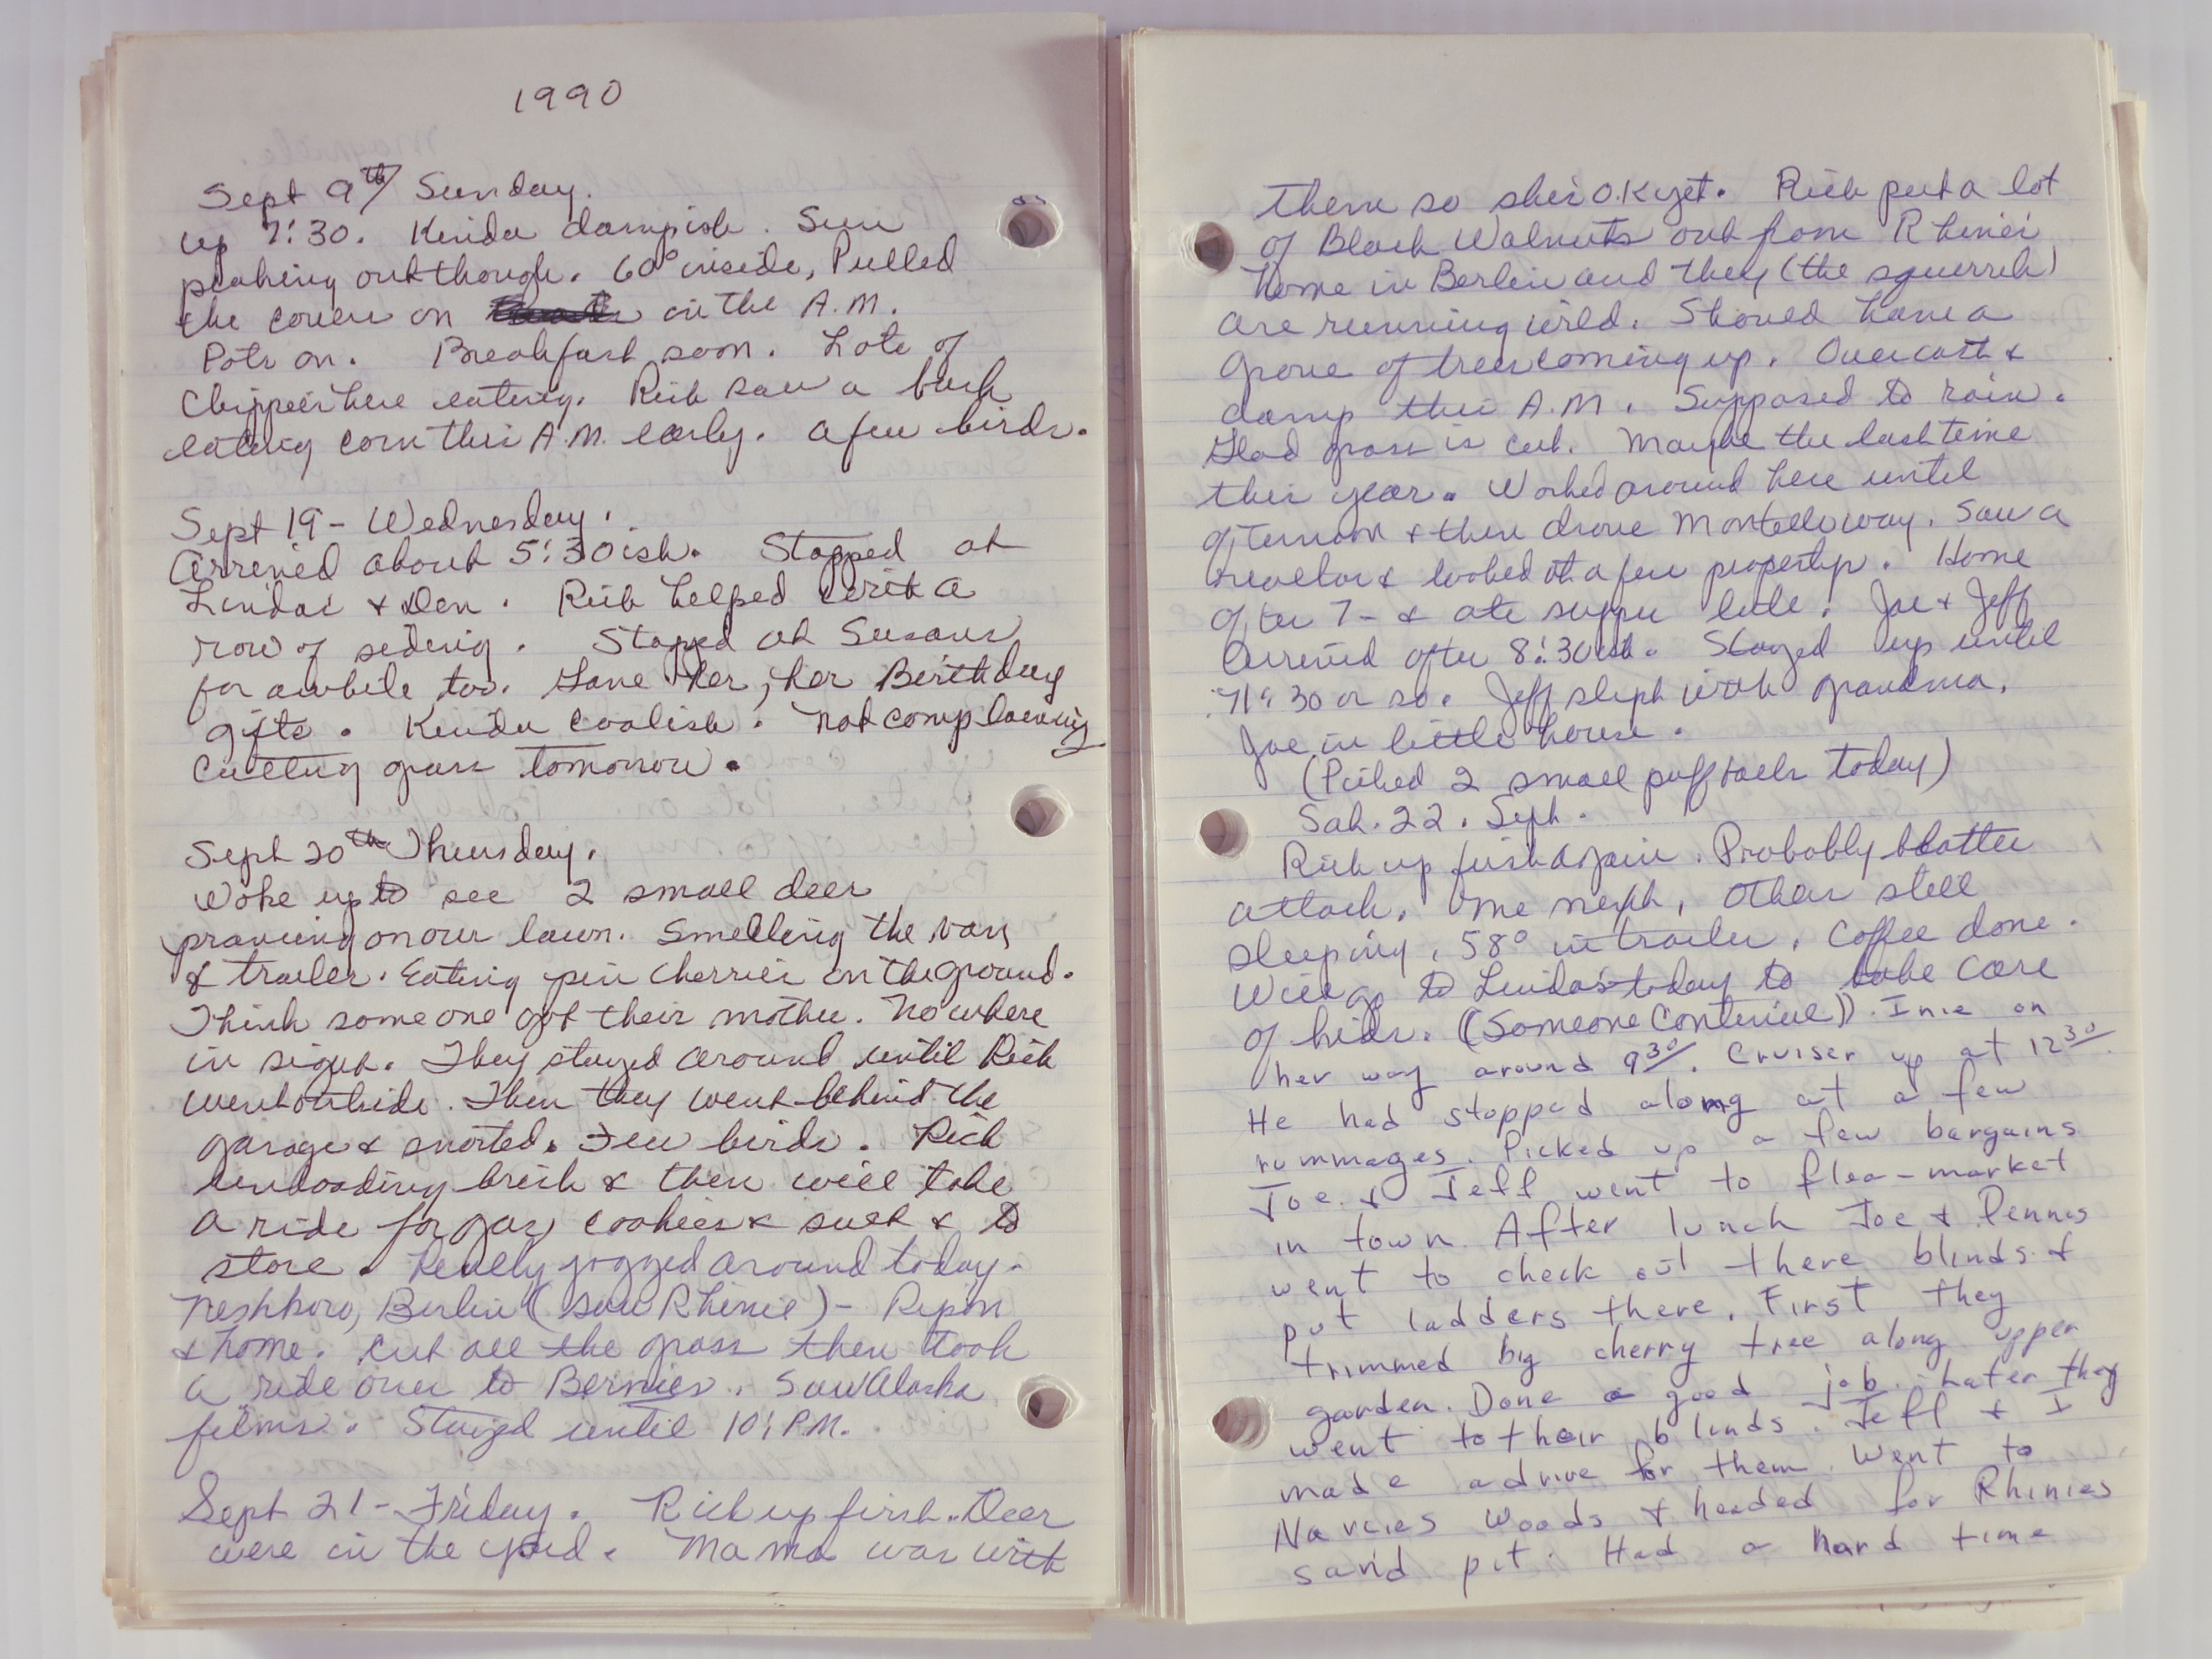 1990
Sept 9th/ Sunday.
up 7:30. Kinda dampish. Sun
peaking out though. 60° inside, Pulled
the covers on in the A.M.
Pots on. Breakfast soon. Lots of
Chippers here eating. Rich saw a buck
eating corn this A.M. early. a few birds.
Sept 19 - Wednesday.
Arrived about 5:30ish. Stopped at
Lindas & Den. Rich helped with a
row of sideing. Stopped at Susans
for awhile, too. Gave her, her Birthday
gifts. Kinda coolish. Not complaining
Cutting grass tomorrow.
Sept 20th Thursday.
Woke up to see 2 small deer
prancing on our lawn. Smelling the van
& trailer. Eating pin cherries on the ground.
Think some one got their mother. No where
in sight. They stayed around until Rich
went outside. Then they went behind the
garage & snorted. Few birds. Rich
unloading brick & then will take
a ride for gas, cookies & suet & to
store. Really jogged around today.
Neshkoro, Berlin (saw Rhinie) - Ripon
& home. Cut all the grass then took
a ride over to Bernies. Saw Alaska
films. Stayed until 10: P.M.
Sept 21 - Friday. Rich up first. Deer
were in the yard. Mama was with
them so she's O.K yet. Rich put a lot
of Black Walnuts out from Rhinies
home in Berlin and they (the squirrels)
are running wild. Should have a
grove of trees coming up. Overcast &
damp this A.M. Supposed to rain.
Glad grass is cut. Maybe the last time
this year. Worked around here until
afternoon & then drove Montello way. Saw a
realtor & looked at a few propertys. Home
after 7- & ate supper late. Joe & Jeff
Arrived after 8:30ish. Stayed up until
11:30 or so. Jeff slept with grandma,
Joe in little house.
(Picked 2 small puff balls today)
Sat. 22. Sept.
Rich up first again. Probably blatter
attack. Me next, Others still
sleeping. 58° in trailer. Coffee done.
Will go to Linda's today to take care
of kids. ((Someone Continue)). Inie on
her way around 9 30/. Cruiser up at 12 30/.
He had stopped along at a few
rummages. Picked up a few bargains
Joe & Jeff went to flea-market
in town. After lunch Joe & Dennis
went to check out there blinds &
put ladders there. First they
trimmed big cherry tree along upper
garden. Done a good job. Later they
went to their blinds. Jeff & I
made a drive for them. Went to
Narcies Woods & headed for Rhinies
sand pit. Had a hard time